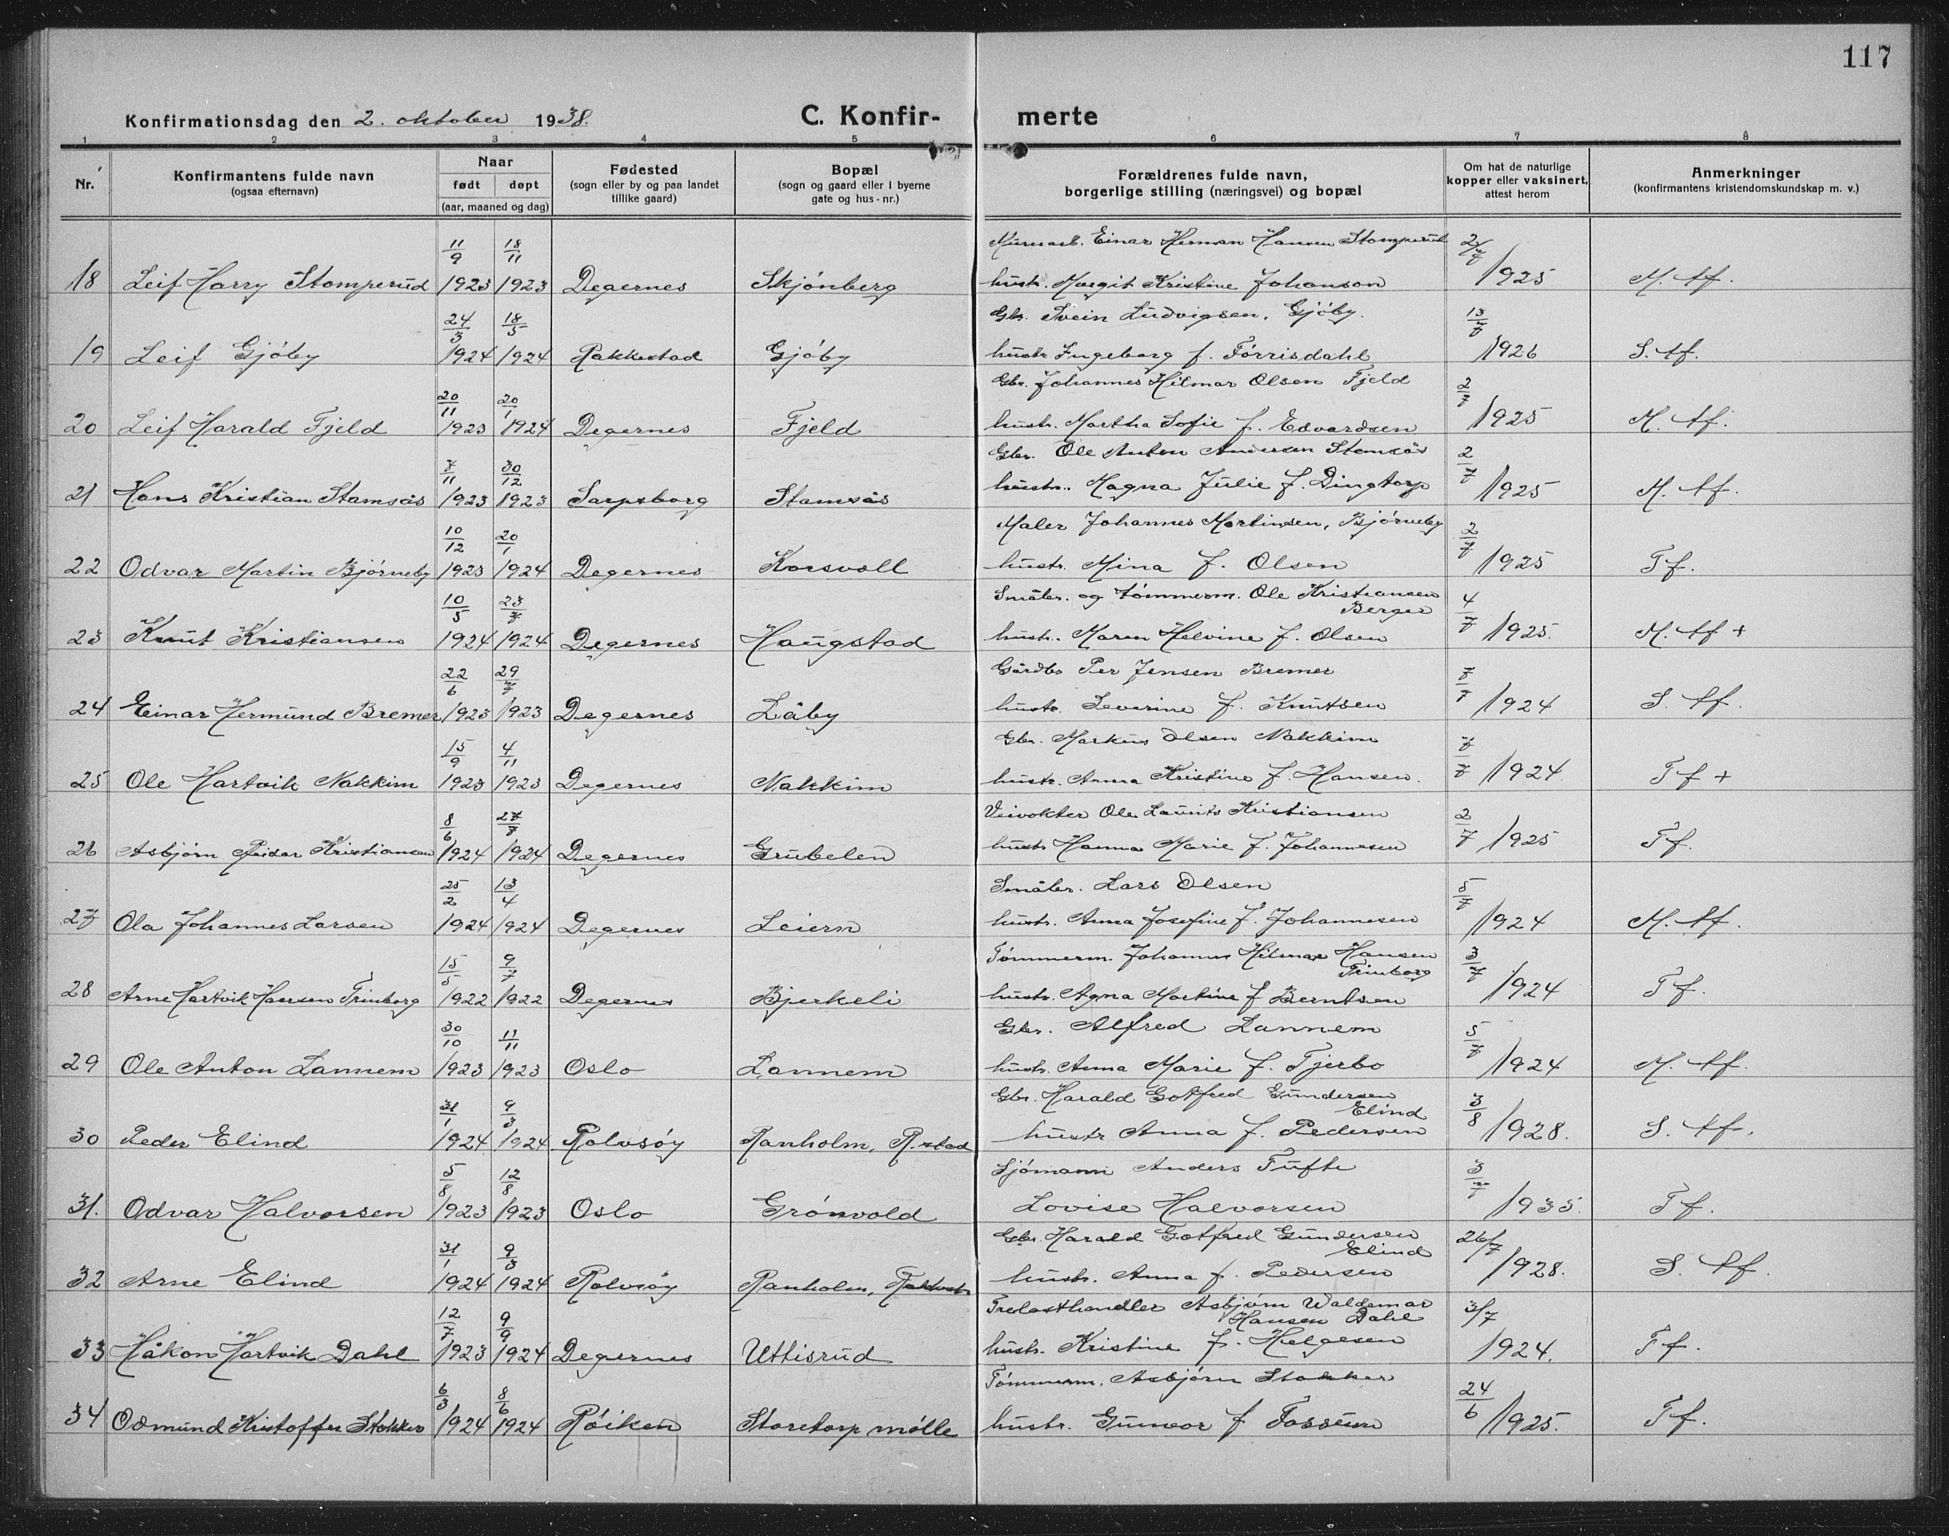 117
Konfirmationsdag den 2. oktober 1938.
C. Konfir- merte
1 2 3 4 5 6 7 8
Nr. Konfirmantens fulde navn (ogsaa efternavn) Naar født døpt (aar, maaned og dag) Fødested (sogn eller by og paa landet tillike gaard) Bopæl (sogn og gaard eller i byerne gate og hus-nr.) Forældrenes fulde navn, borgerlige stilling (næringsvei) og bopæl Om hat de naturlige kopper eller vaksinert, attest herom Anmerkninger (konfirmantens kristendomskundskap m. v.)
11/9 18/11 Murerarb. Einar Herman Hansen Stomperud 2/7
18 Leif Harry Stomperud 1923 1923 Degernes Skjønberg hustr. Margit Kristine Johanson 1925 M. tf.
24/3 18/5 Gbr. Svein Ludvigsen, Gjøby. 13/7
19 Leif Gjøby 1924 1924 Rakkestad Gjøby hustr Ingeborg f. Tørrisdahl 1926 S. tf.
20/11 20/1 Gbr. Johannes Hilmar Olsen Fjeld 2/7
20 Leif Harald Fjeld 1923 1924 Degernes Fjeld hustr. Martha Sofie f. Edvardsen 1925 M. tf.
7/11 30/12 Gbr. Ole Anton Andersen Stamsås 2/7
21 Hans Kristian Stamsås 1923 1923 Sarpsborg Stamsås hustr. Magna Julie f. Dingtorp 1925 M. tf.
10/12 20/1 Maler Johannes Martinsen, Bjørneby 2/7
22 Odvar Martin Bjørneby 1923 1924 Degernes Korsvoll hustr. Mina f. Olsen 1925 Tf.
10/5 23/7 Småbr. og tømmerm. Ole Kristiansen Berger 4/7
23 Knut Kristiansen 1924 1924 Degernes Haugstad hustr. Maren Helvine f. Olsen 1925. M. tf +
22/6 29/7 Gårdbr Per Jensen Bremer 7/7
24 Einar Hermund Bremer 1923 1923 Degernes Låby hustr. Severine f. Knutsen 1924 S. tf.
15/9 4/11 Gbr. Markus Olsen Nakkim 7/7
25 Ole Hartvik Nakkim 1923 1923 Degernes Nakkim hustr. Anna Kristine f Hansen. 1924. Tf +
8/6 27/7 Veivokter Ole Laurits Kristiansen 2/7
26 Asbjørn Reidar Kristiansen 1924 1924 Degernes Grubelen hustr Hanna Marie f. Johannesen 1925 Tf.
25/2 13/4 Småbr. Lars Olsen 5/7
27 Ola Johannes Larsen 1924 1924 Degernes Leiern hustr. Anna Josefine f. Johannesen 1924 M. tf.
15/5 9/7 Tømmerm. Johannes Hilmar Hansen Trinborg 3/7
28 Arne Hartvik Hansen Trinborg 1922 1922 Degernes Bjerkeli hustr. Agna Martine f Berntsen 1924 Tf.
30/10 11/11 Gbr. Alfred Lannem 5/7
29 Ole Anton Lannem 1923 1923 Oslo Lannem hustr. Anna Marie f. Tjerbo 1924 M. tf.
31/1 9/3 Gbr. Harald Gotfred Gundersen Elind 3/8
30 Peder Elind 1924 1924 Rolvsøy Ranholm, R.stad hustr Anna f. Pedersen 1928. S. tf.
5/8 12/8 Sjømann Anders Tufte 3/7
31. Odvar Halvorsen 1923 1923 Oslo Grønvold Lovise Halvorsen 1935. Tf.
31/1 9/3 Gbr. Harald Gotfred Gundersen Elind 26/7
32 Arne Elind 1924 1924 Rolvsøy Ranholm, hustr. Anna f. Pedersen 1928. S. tf.
12/7 9/9 Trelasthandler Asbjørn Waldemar Hansen Dahl 3/7
33 Håkon Hartvik Dahl 1923 1924 Degernes Uttisrud hustr. Kristine f. Helgesen 1924. Tf.
6/3 8/6 Tømmerm. Asbjørn Stokker 24/6
34 Odmund Kristoffer Stokker 1924 1924 Røiken Storetorp mølle hustr. Gunvor f Fossum 1925. Tf.